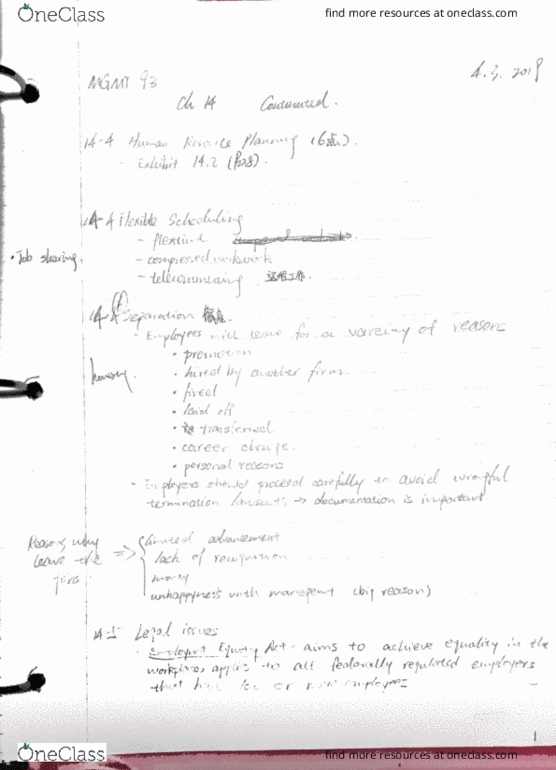 OneClass
find more resources at oneclass.com
4.3.2019
MGMT 93
Ch 14 Continued.
14-4 Human Resource Planning (6点).
- Exhibit 14.2
14-4 Flexible Scheduling
- flextime
• Job sharing.
- compressed workweek
- telecommuting 远程工作.
Separation
- Employees will leave for a variety of reasons
• promotion
• hired by another firm
• fired
• laid off
• transferred
• career change
• personal reasons
- Employers should proceed carefully to avoid wrongful
termination lawsuits → documentation is important
Reasons why
leave the
=> limited advancement
lack of recognition
money
unhappyness with management (big reason)
14-5 Legal issues
- Employment Equity Act - aims to achieve equality in the
workplace, applies to all federally regulated employers
that have 100 or more employees
1
OneClass
find more resources at oneclass.com